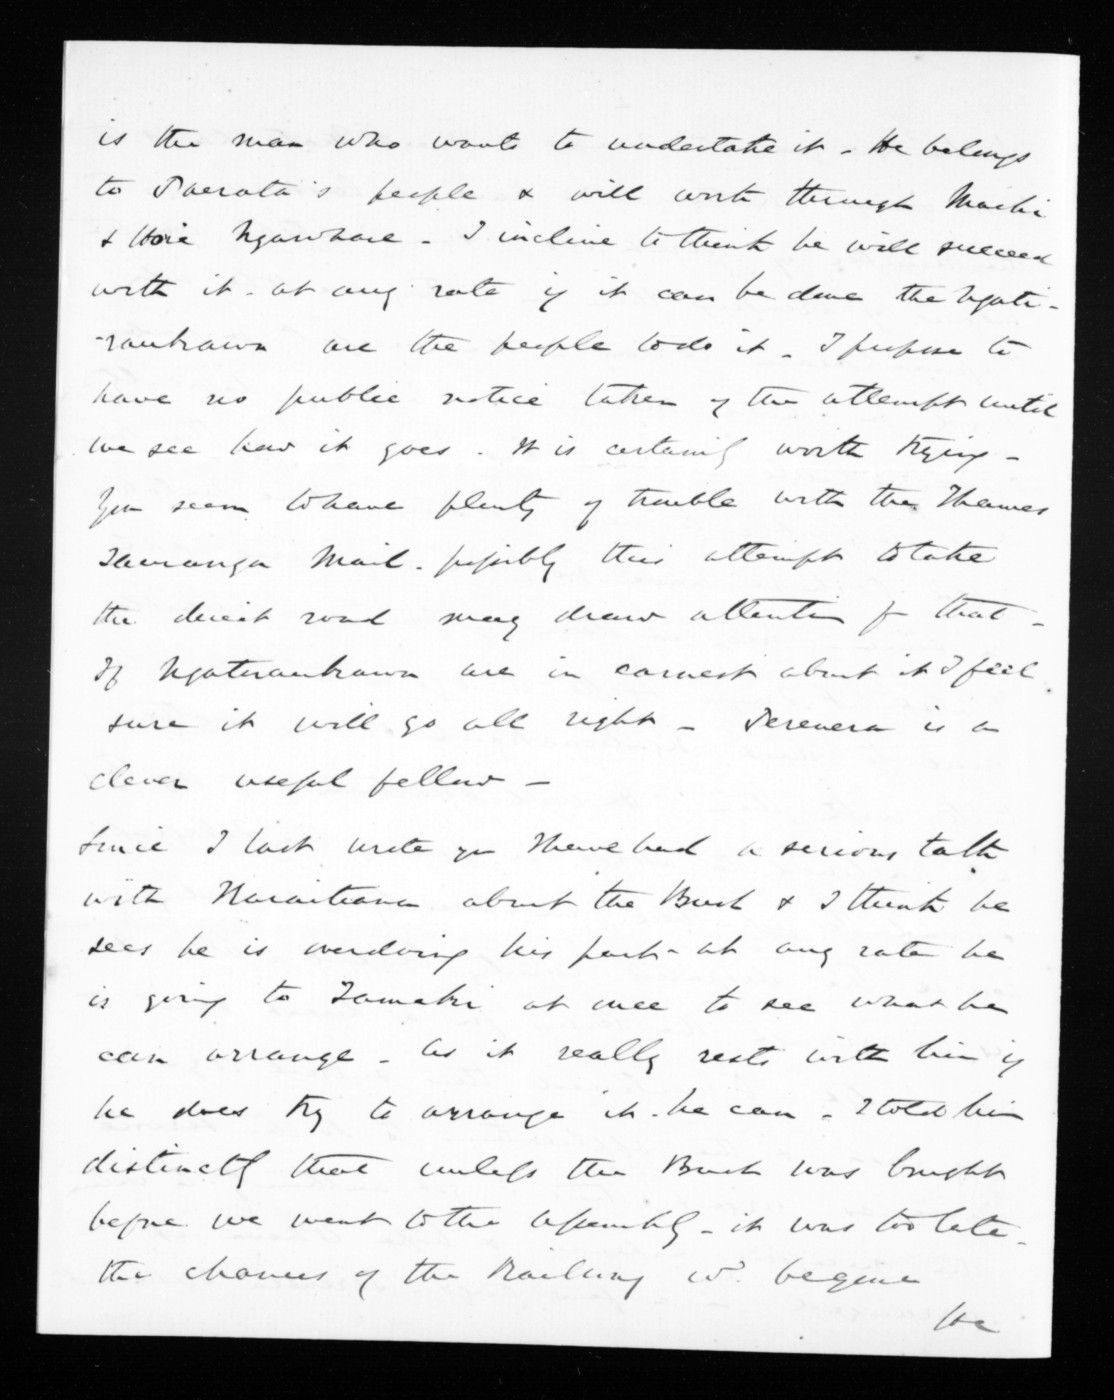 is the man who wants to undertake it - He belongs
to Paerata's people & will work through Maihi
& Hori Ngawhare - I incline to think he will succeed
with it - at any rate if it can be done the Ngati-
-raukawa are the people to do it - I propose to
have no public notice taken of the attempt until
we see how it goes . It is certainly worth trying -
You seem to have plenty of trouble with the Thames
Tauranga Mail - possibly this attempt to take
the direct road may draw attention fr that -
If Ngatiraukawa are in earnest about it I feel
sure it will go all right - Perenera is a
clever useful fellow -
Since I last wrote you I have had a serious talk
with Huraitiana about the Bush & I think he
sees he is overdoing his part - at any rate he
is going to Tamaki at once to see what he
can arrange - As it really rests with him if
he does try to arrange it - he can - I told him
distinctly that unless the Bush was bought
before we went to the Assembly - it was too late -
the chances of the Railway wd. be gone
He